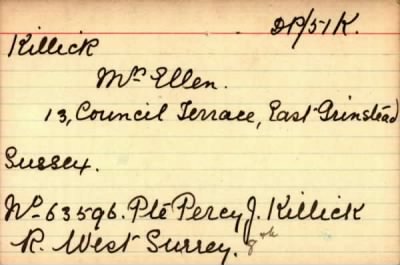 DP/51K.
Killick
Mrs Ellen.
13, Council Terrace, East Grinstead
Sussex.
No 63596. Pte Percy J. Killick
R. West Surrey. 8th